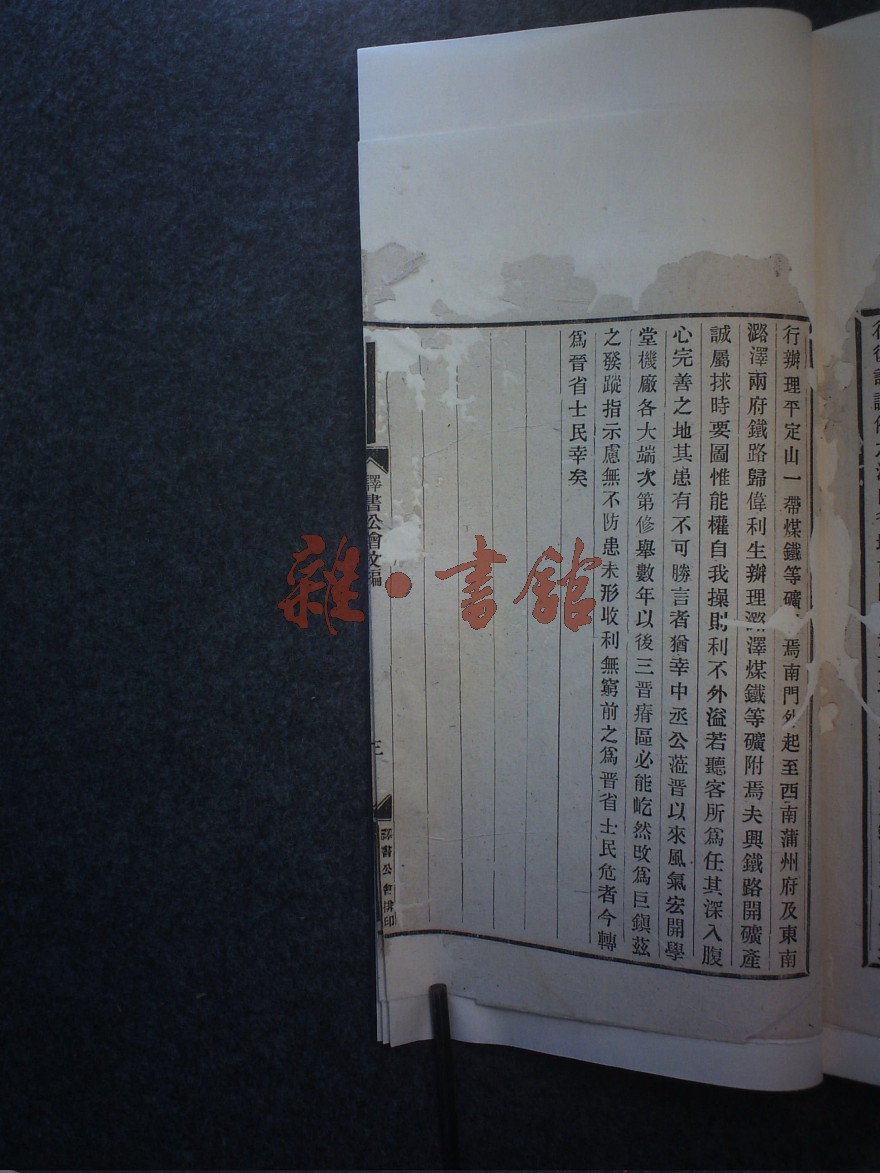 行辦理平定山一帶煤鐵等礦焉南門外起至西南蒲州府及東南
潞澤兩府鐵路歸偉利生辦理潞澤煤鐵等礦附焉夫興鐵路開礦產
誠屬捄時要圖惟能權自我操則利不外溢若聽客所爲任其深入腹
心完善之地其患有不可勝言者猶幸中丞公蒞晉以來風氣宏開學
堂機廠各大端次第修舉數年以後三晉瘠區必能屹然改爲巨鎭茲
之發蹤指示慮無不防患未形收利無窮前之爲晉省士民危者今轉
爲晉省士民幸矣
譯書公會文編
三
譯書公會排印
雜·書館